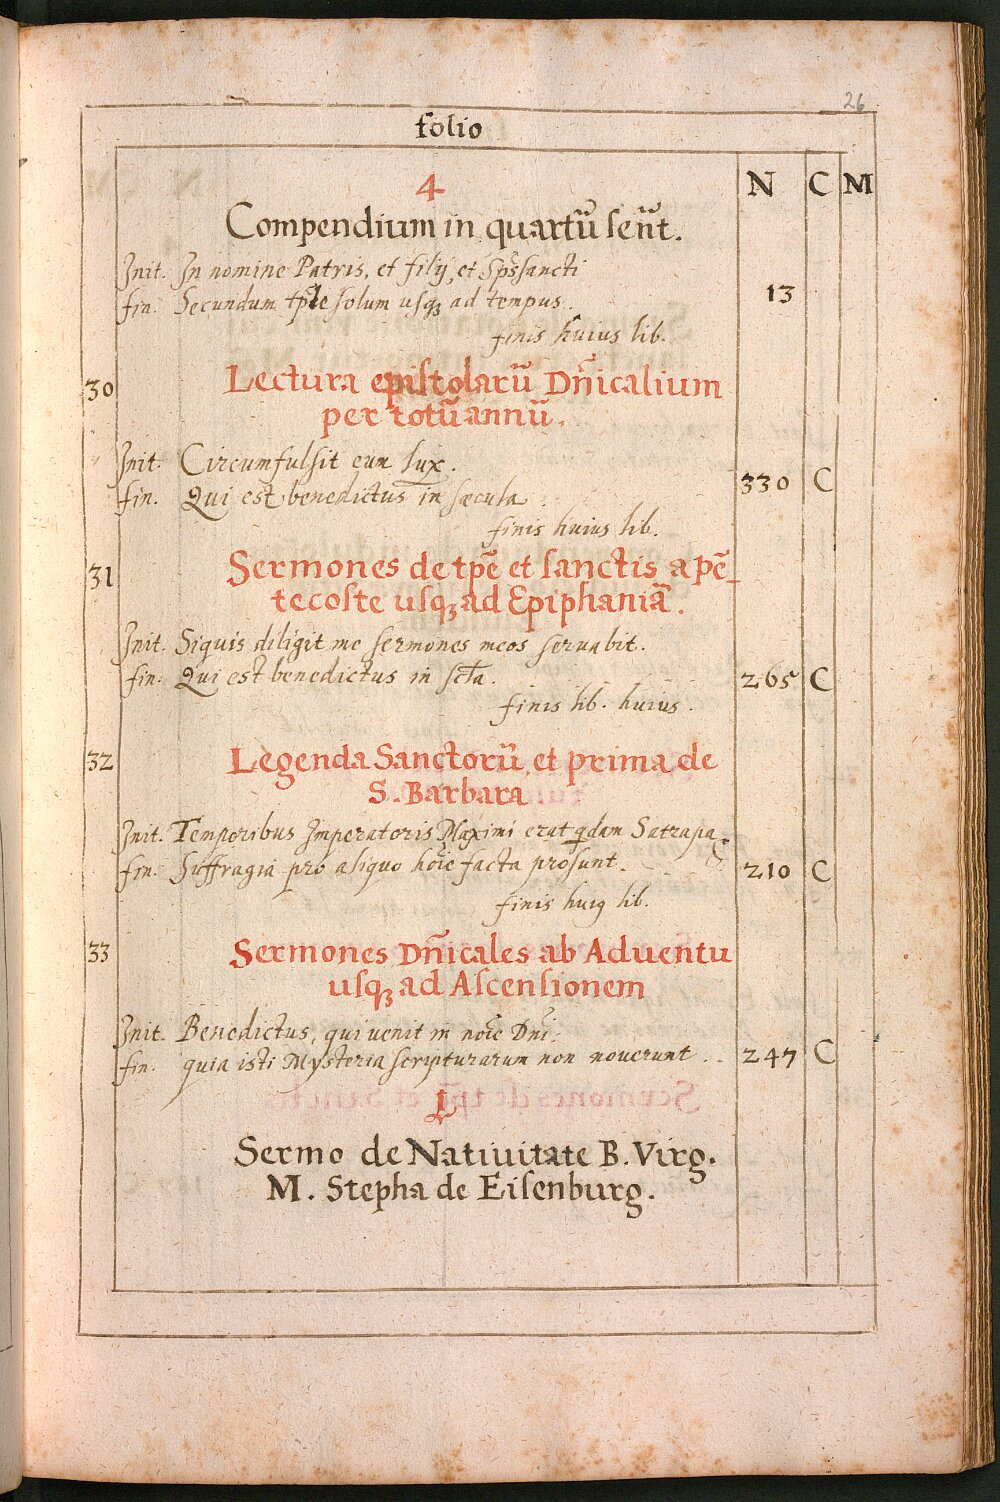 26
folio
N C M
4
Compendium in quartũ sẽnt.
Init. In nomine Patris, et filij, et Spũssancti
fin. Secundum tp̃le solum usq₃ ad tempus.
13
finis huius lib.
30 Lectura epistolarũ Dñicalium
per totũ annũ.
Init. Circumfulsit eum lux.
fin. Qui est benedictus in sæcula. 330 C
finis huius lib.
31 Sermones de tpẽ et sanctis a pẽ_
tecoste usq₃ ad Epiphaniã.
Init. Siquis diligit me sermones meos seruabit.
fin: Qui est benedictus in scl̃a. 265 C
finis lib. huius.
32 Legenda Sanctorũ, et prima de
S. Barbara
Init. Temporibus Imperatoris Maximi erat qdam Satrapa
fin. Suffragia pro aliquo hõie facta prosunt. 210 C
finis huiꝰ lib.
33 Sermones Dñicales ab Aduentu
usq₃ ad Ascensionem
Init. Benedictus, qui uenit in nõie Dñi.
fin. quia isti Mysteria scripturarum non nouerunt .. 247 C
L
Sermo de Natiuitate B. Virg.
M. Stepha de Eisenburg.